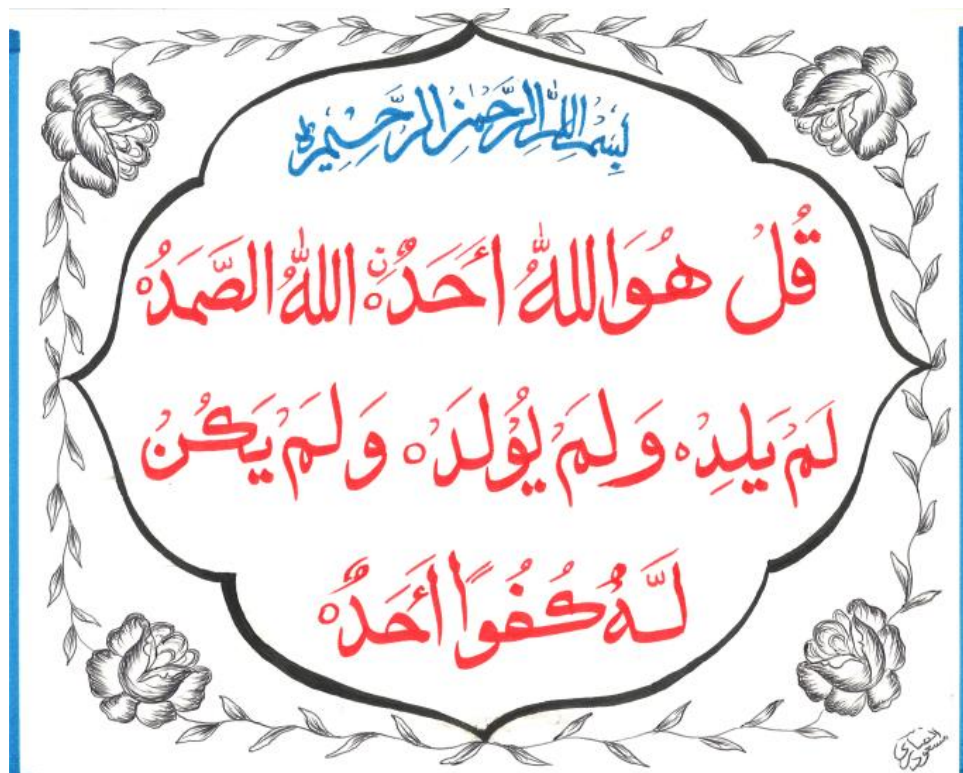 بِسْمِ اللّٰهِ الرَّحْمٰنِ الرَّحِيْمِ ۝
قُلْ هُوَ اللّٰهُ أَحَدٌ ۝ نِ اللّٰهُ الصَّمَدُ ۝
لَمْ يَلِدْ ۝ وَلَمْ يُوْلَدْ ۝ وَلَمْ يَكُنْ
لَّهٗ كُفُوًا أَحَدٌ ۝
انصاری
مسعود